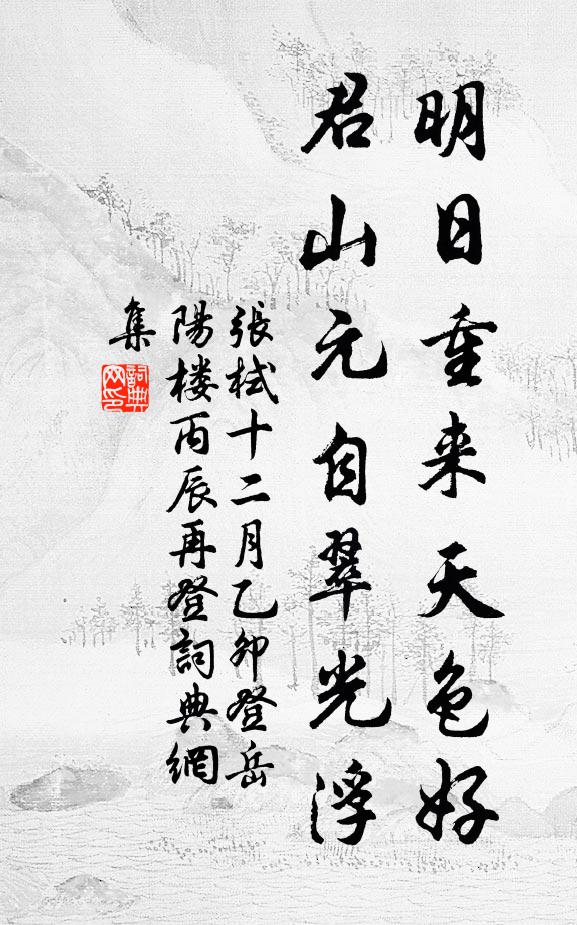 明日重来天色好
君山元自翠光浮
張栻十二月乙卯登岳
陽楼丙辰再登詞典網
集
詞典
网印